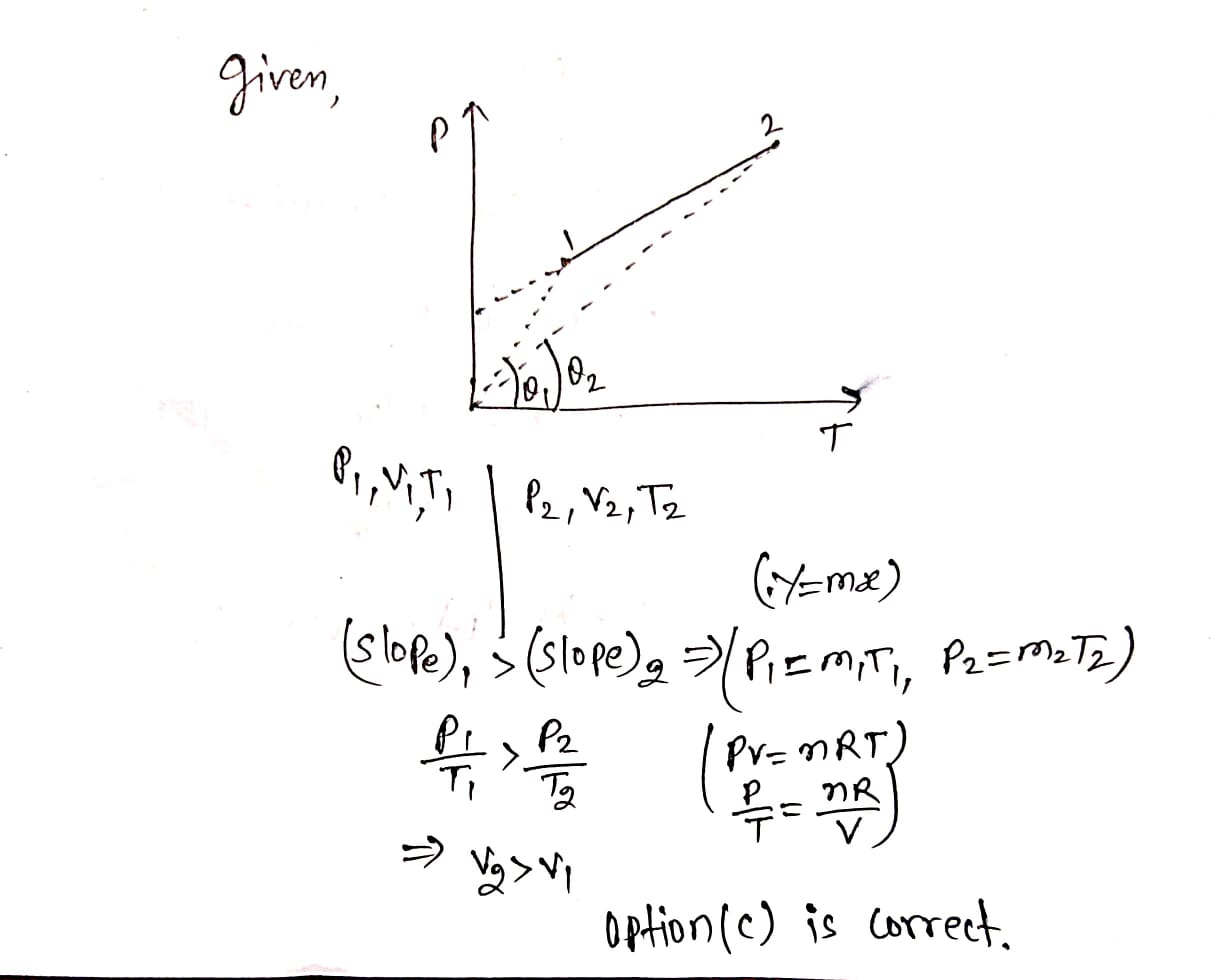 Given,
P
2
1
θ1 θ2
T
P1, V1, T1 | P2, V2, T2
(∵ Y=mx)
(Slope)1 > (slope)2 ⇒ (P1 = m1T1, P2 = m2T2)
P1/T1 > P2/T2 (PV = nRT)
(P/T = nR/V)
⇒ V2 > V1
option(c) is correct.